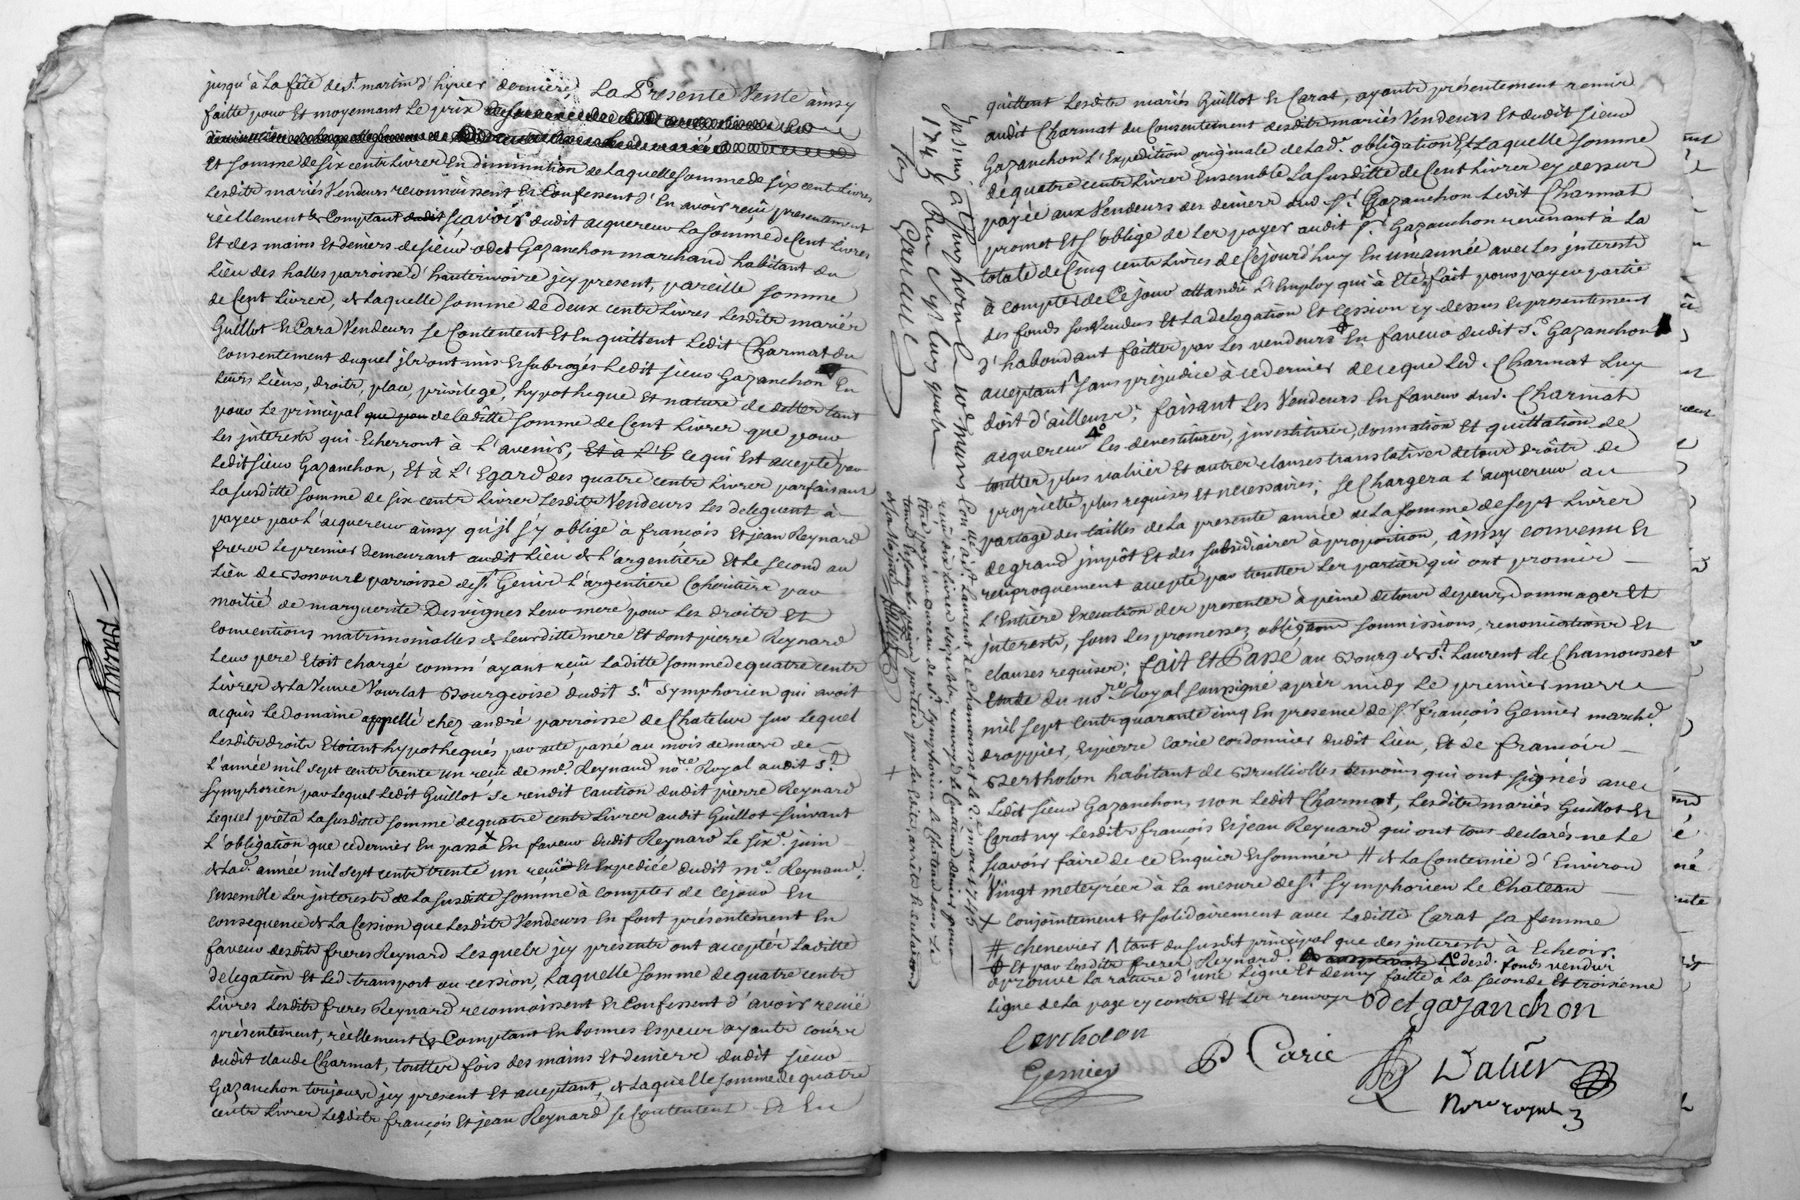 jusqu'à La fête de St. martin d'hyver derniere, La Presente Vente ainsy
faitte pour Et moyennant Le prix
Et somme de six cents Livres En diminution de Laquelle somme de six cent Livres
Lesdits mariés Vendeurs reconnoissent Et Confessent d'En avoir reçû presentement
réellement & Comptant dudit sçavoir dudit acquereur La somme de Cent Livres
Et des mains Et deniers de sieur odet Gazanchon marchand habitant du
Lieu des halles parroisse d'hauterivoire jcy present, pareille somme
de Cent Livres, de Laquelle somme de deux cents Livres Lesdits mariés
Guillot Et Cara Vendeurs se Contentent Et En quittent Ledit Charmat du
consentement duquel jls ont mis Et subrogés Ledit sieur Gazanchon En
Leurs Lieux, droits, place, privilege, hypotheque Et nature de dettes tant
pour Le principal que pour de laditte somme de Cent Livres que pour
Les interests qui Echerront à L'avenir, Et a L'E ce qui Est accepté par
Ledit sieur Gazanchon, Et à L'Egard des quatre cents Livres parfaisant
La susditte somme de six cents Livres Lesdits Vendeurs Les deleguent à
payer par L'acquereur ainsy qu'jl s'y oblige à françois Et jean Reynard
freres Le premier demeurant audit Lieu de L'argentiere Et Le second au
Lieu de parroisse de St. Genis L'argentiere Cohéritiers par
moitié de marguerite Desvignes Leur mere pour Les droits Et
conventions matrimonialles de Leurditte mere Et dont pierre Reynard
Leur pere Etoit chargé comm' ayant reçu Laditte somme de quatre cents
Livres de La Veuve Vourlat Bourgeoise dudit St. Symphorien qui avoit
acquis Le domaine appellé chez andré parroisse de Chatelus sur Lequel
Lesdits droits Etoient hypothequés par acte passé au mois de mars de
L'année mil sept cents trente un reçu de me. Reynaud nore. Royal audit St.
Symphorien par Lequel Ledit Guillot se rendit Caution dudit pierre Reynard
Lequel prêta La susditte somme de quatre cents Livres audit Guillot suivant
L'obligation que ce dernier En passa X En faveur dudit Reynard Le six.e juin
de Lad. année mil sept cents trente un reçuë Et Expediée dudit me. Reynaud;
Ensemble Les interests de La susditte somme à compter de ce jour En
consequence de La Cession que Lesdits Vendeurs En font présentement En
faveur desdits freres Reynard Lesquels jcy presents ont acceptés Laditte
délegation Et Led. transport ou cession, Laquelle somme de quatre cents
Livres Lesdits freres Reynard reconnoissent Et Confessent d'avoir reçuë
présentement, réellement & Comptant En bonnes Espèces ayants cours
dudit claude Charmat, touttes fois des mains Et deniers dudit sieur
Gazanchon toujours jcy present Et acceptant, de Laquelle somme de quatre
cents Livres Lesdits françois Et jean Reynard se Contentent Et En
Parrat
Insinué a St. Symphorien le 10e mars
1745 Reçu sept livres quatre
sols
Con.llé a St. Laurent de Chamousset le 2 mars 1745
quittent Lesdits mariés Guillot Et Carat, ayants présentement remis
audit Charmat du Consentement desdits mariés Vendeurs Et dudit sieur
Gazanchon L'Expedition originale de Lad. obligation, Et Laquelle somme
de quatre cents Livres Ensemble La susditte de Cent Livres cy dessus
payée aux Vendeurs des deniers dud. Sr. Gazanchon Ledit Charmat
promet Et s'oblige de Les payer audit Sr. Gazanchon revenant à La
totale de Cinq cents Livres de Ce jourd'huy En une année avec Les interests
à compter de Ce jour attandu L'Employ qui à Eté fait pour payer partie
des fonds sus Vendus Et La délegation Et Cession cy dessus Et presentement
d'habondant faittes par Les vendeurs En faveur dudit Sr. Gazanchon
acceptant sans prejudice à ce dernier de ce que Led. Charmat Luy
doit d'ailleurs; faisant Les Vendeurs En faveur dud. Charmat
acquereur Les devestitures, jnvestitures, donnation Et quittation de
touttes plus values Et autres clauses translatives de tous droits de
proprieté plus requises Et necessaires; se Chargera L'acquereur au
partage des tailles de La presente année de La somme de sept Livres
de grand jmpôt Et des subsidiaires à proportion, ainsy convenu Et
réciproquement accepté par touttes Les parties qui ont promis
L'Entiere Execution des presentes à peine de tous depens, dommages Et
interests, sous Les promesses, obligaons soumissions, renonciations Et
clauses requises; fait Et Passé au Bourg de St. Laurent de Chamousset
Etude du nore. Royal soussigné après midy Le premier mars
mil sept cents quarante cinq En presence de Sr. françois Genier marchd.
drappier, Et pierre Carie cordonnier dudit Lieu, Et de françois
Bertholon habitant de Brulliolles temoins qui ont signés avec
Ledit sieur Gazanchon, non Ledit Charmat, Lesdits mariés Guillot Et
Carat ny Lesdits françois Et jean Reynard qui ont tous declarés ne Le
sçavoir faire de ce Enquis Et sommés # de La Contenuë d'Environ
Vingt meteyrées à La mesure de St. Symphorien Le Chateau
X conjointement Et solidairement avec Laditte Carat sa femme
# chenevier Λ tant du susdit principal que des jnterests à Echeoir.
Et par Lesdits freres Reynard. desd. fonds vendus
aprouvé La rature d'une Ligne Et demy faitte à La seconde Et troisieme
Ligne de La page cy contre Et Les renvoys odet gazanchon
bertholon
Genier
P Carie
Nore royal